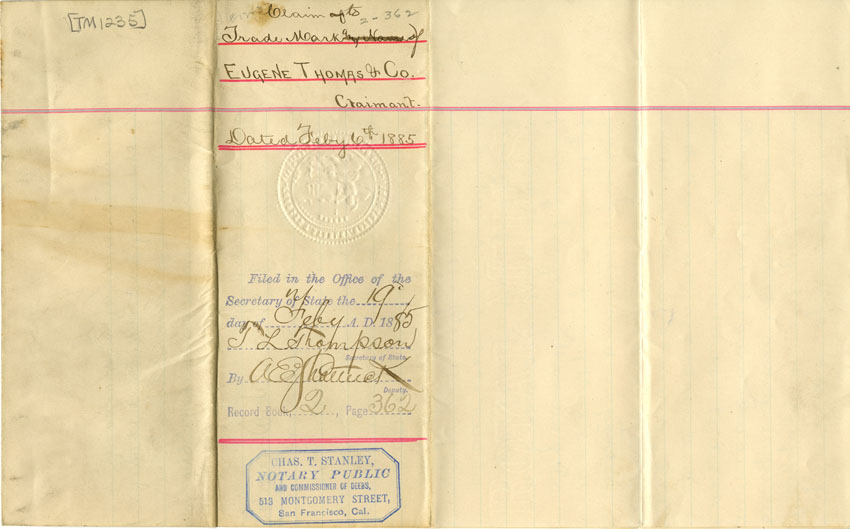 [TM1235]
Claim of to
2-362
Trade Mark by Name of
EUGENE THOMAS & Co.
Claimant.
Dated Feby 6th 1885
Filed in the Office of the
Secretary of State the 19th
day of Feby A. D. 1885
T L Thompson
Secretary of State
By A E Shattuck
Deputy.
Record Book, 2, Page 362
CHAS. T. STANLEY,
NOTARY PUBLIC
AND COMMISSIONER OF DEEDS,
513 MONTGOMERY STREET,
San Francisco, Cal.